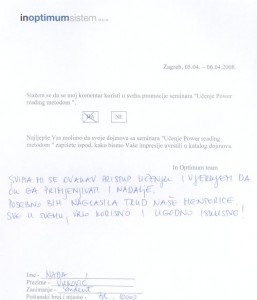 inoptimumsistem d.o.o.
Zagreb, 05.04. – 06.04.2008.
Slažem se da se moj komentar koristi u svrhu promocije seminara "Učenje Power
reading metodom ".
DA NE
Najljepše Vas molimo da svoje dojmove sa seminara "Učenje Power reading
metodom " zapišete ispod, kako bismo Vaše impresije uvrstili u katalog dojmova.
In Optimum team
SVIĐA MI SE OVAKAV PRISTUP UČENJU I VJERUJEM DA
ĆU GA PRIMJENJIVATI I NADALJE.
POSEBNO BIH NAGLASILA TRUD NAŠE MENTORICE.
SVE U SVEMU, VRLO KORISNO I UGODNO ISKUSTVO!
Ime - NADA
Prezime - VUKOVIĆ
Zanimanje -
Poštanski broj i mjesto -